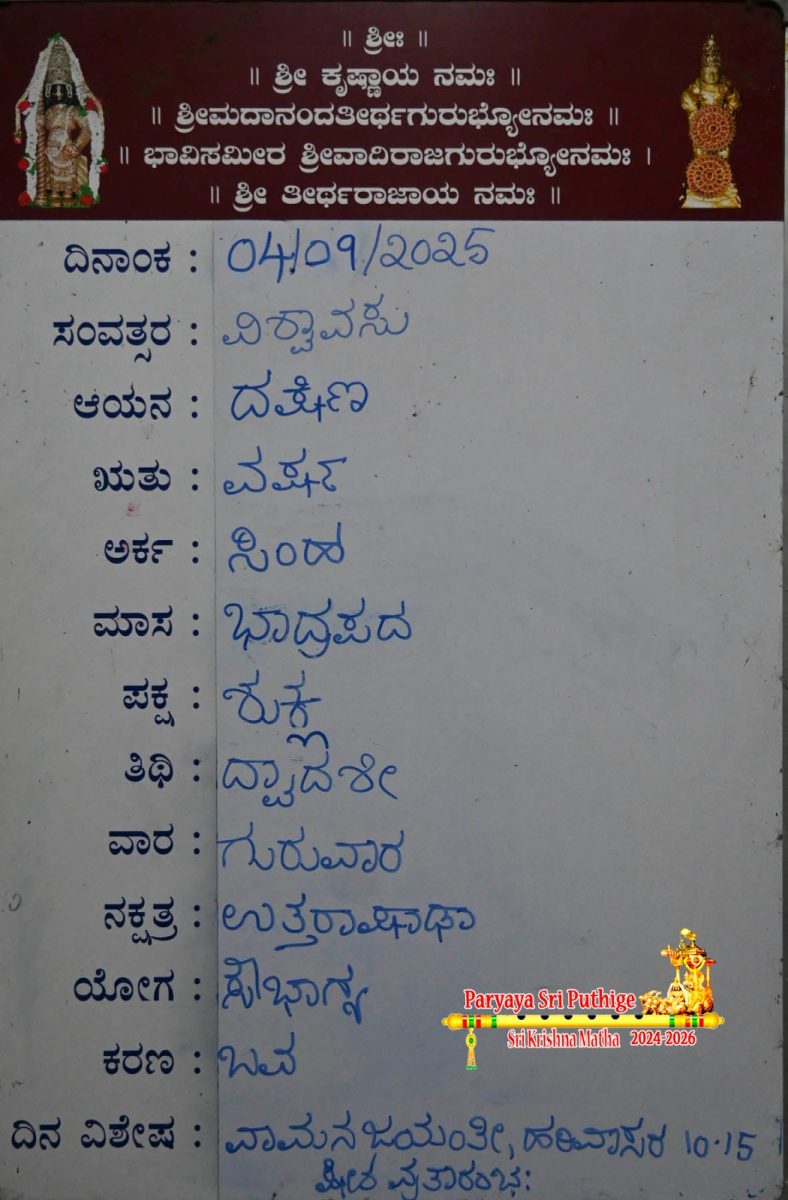 ॥ ಶ್ರೀಃ ॥
॥ ಶ್ರೀ ಕೃಷ್ಣಾಯ ನಮಃ ॥
॥ ಶ್ರೀಮದಾನಂದತೀರ್ಥಗುರುಭ್ಯೋನಮಃ ॥
॥ ಭಾವಿಸಮೀರ ಶ್ರೀವಾದಿರಾಜಗುರುಭ್ಯೋನಮಃ ।
॥ ಶ್ರೀ ತೀರ್ಥರಾಜಾಯ ನಮಃ ॥
ದಿನಾಂಕ : 04/09/2025
ಸಂವತ್ಸರ : ವಿಶ್ವಾವಸು
ಆಯನ : ದಕ್ಷಿಣ
ಋತು : ವರ್ಷ
ಅರ್ಕ : ಸಿಂಹ
ಮಾಸ : ಭಾದ್ರಪದ
ಪಕ್ಷ : ಶುಕ್ಲ
ತಿಥಿ : ದ್ವಾದಶೀ
ವಾರ : ಗುರುವಾರ
ನಕ್ಷತ್ರ : ಉತ್ತರಾಷಾಢಾ
ಯೋಗ : ಸೌಭಾಗ್ಯ
ಕರಣ : ಬವ
ದಿನ ವಿಶೇಷ : ವಾಮನ ಜಯಂತೀ, ಹರಿವಾಸರ 10.15
ಕ್ಷೀರ ವ್ರತಾರಂಭ:
Paryaya Sri Puthige
Sri Krishna Matha 2024-2026